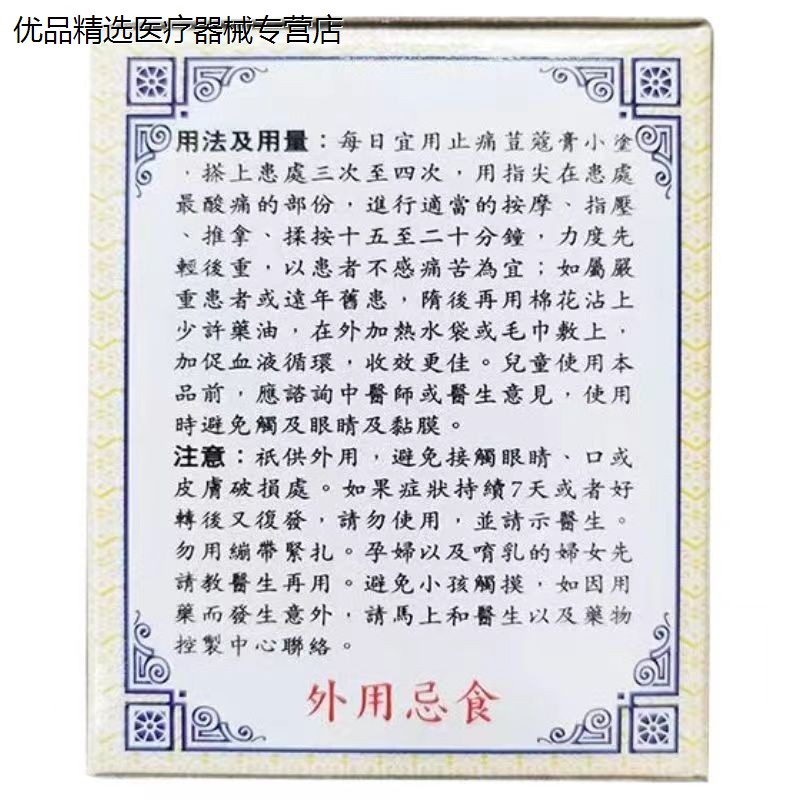 优品精选医疗器械专营店
用法及用量：每日宜用止痛荳蔻膏小塗
，搽上患處三次至四次，用指尖在患處
最酸痛的部份，進行適當的按摩、指壓
、推拿、揉按十五至二十分鐘，力度先
輕後重，以患者不感痛苦為宜；如屬嚴
重患者或遠年舊患，隋後再用棉花沾上
少許藥油，在外加熱水袋或毛巾敷上，
加促血液循環，收效更佳。兒童使用本
品前，應諮詢中醫師或醫生意見，使用
時避免觸及眼睛及黏膜。
注意：祇供外用，避免接觸眼睛、口或
皮膚破損處。如果症狀持續7天或者好
轉後又復發，請勿使用，並請示醫生。
勿用繃帶緊扎。孕婦以及哺乳的婦女先
請教醫生再用。避免小孩觸摸，如因用
藥而發生意外，請馬上和醫生以及藥物
控製中心聯絡。
外用忌食